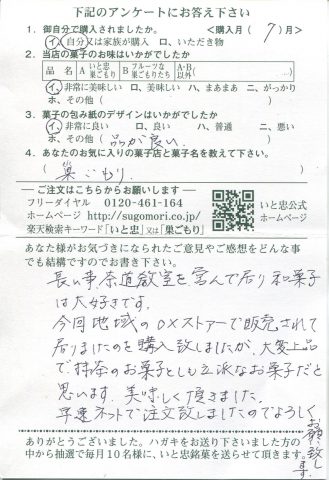 下記のアンケートにお答え下さい
1. 御自分で購入されましたか。 <購入月( 7 )月>
イ、自分又は家族が購入 ロ、いただき物
2. 当店の菓子のお味はいかがでしたか
品名 A いと忠巣ごもり B フルーツな巣ごもりたち A・B以外( )
イ、非常に美味しい ロ、美味しい ハ、まあまあ ニ、がっかり
ホ、その他( )
3. 菓子の包み紙のデザインはいかがでしたか
イ、非常に良い ロ、良い ハ、普通 ニ、悪い
ホ、その他( 品が良い )
4. あなたのお気に入りの菓子店と菓子名を教えて下さい。
( 巣ごもり )
―ご注文はこちらからお願いします―
フリーダイヤル 0120-461-164
ホームページ http://sugomori.co.jp/
楽天検索キーワード「いと忠」又は「巣ごもり」
いと忠公式
ホームページ
あなた様がお気づきになられたご意見やご感想をどんな事
でも結構ですのでお書き下さい。
長い事茶道教室を営んで居り和菓子
は大好きです。
今回地域のDXストアーで販売されて
居りましたのを購入致しましたが、大変上品
で抹茶のお菓子としも立派なお菓子だと
思います。美味しく頂きました。
早速ネットで注文致しましたのでよろしく
お願い致します。
ありがとうございました。ハガキをお送り下さいました方の
中から抽選で毎月10名様に、いと忠銘菓を送らせて頂きます。